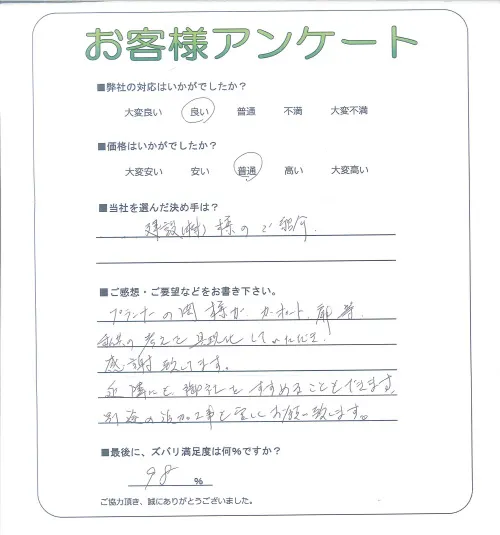 お客様アンケート
■弊社の対応はいかがでしたか？
大変良い 良い 普通 不満 大変不満
■価格はいかがでしたか？
大変安い 安い 普通 高い 大変高い
■当社を選んだ決め手は？
建設(株)様のご紹介.
■ご感想・ご要望などをお書き下さい。
プランナーの岡様が、カーポート、扉等、
私共の考えを具現化していただき、
感謝致してます。
近隣にも御社をすすめることもできます。
別途の追加工事も宜しくお願い致します。
■最後に、ズバリ満足度は何%ですか？
98 %
ご協力頂き、誠にありがとうございました。